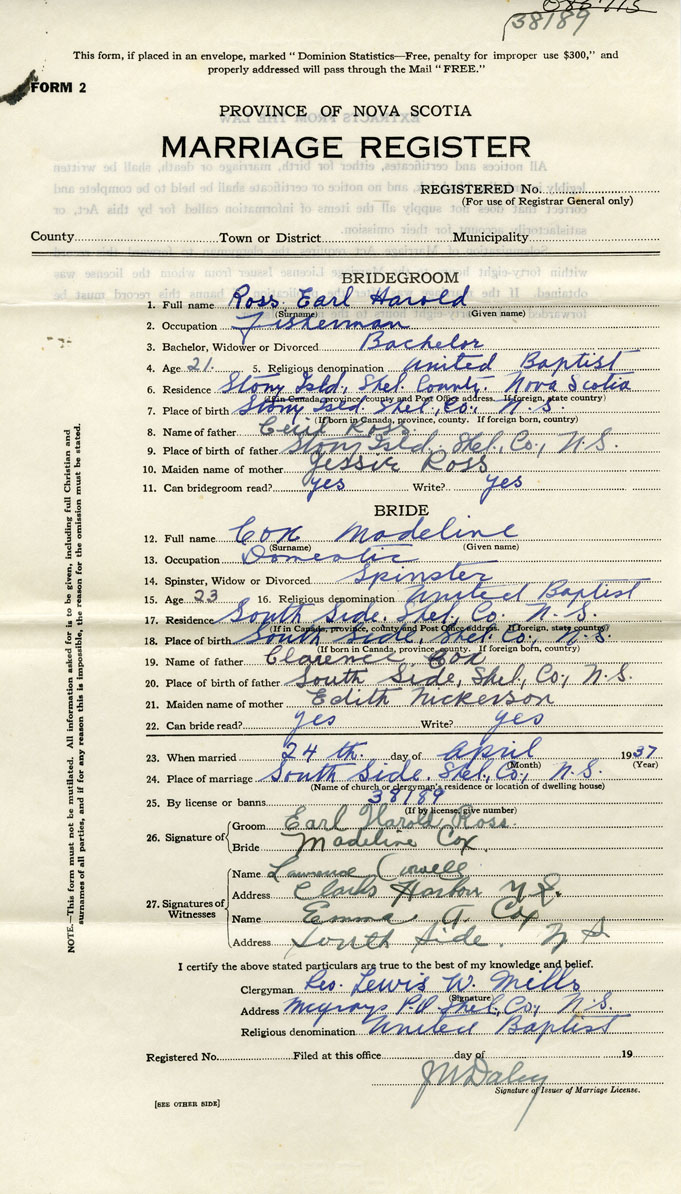 38189
This form, if placed in an envelope, marked "Dominion Statistics—Free, penalty for improper use $300," and
properly addressed will pass through the Mail "FREE."
FORM 2
PROVINCE OF NOVA SCOTIA
MARRIAGE REGISTER
REGISTERED No.
(For use of Registrar General only)
County Town or District Municipality
BRIDEGROOM
1. Full name Ross Earl Harold
(Surname) (Given name)
2. Occupation Fisherman
3. Bachelor, Widower or Divorced Bachelor
4. Age 21. 5. Religious denomination United Baptist
6. Residence Stony Isld., Shel. County. Nova Scotia
(If in Canada, province, county and Post Office address. If foreign, state country)
7. Place of birth Stony Isld. Shel, Co., N.S.
(If born in Canada, province, county. If foreign born, country)
8. Name of father Cecil Ross
9. Place of birth of father Stony Isld., Shel, Co., N.S.
10. Maiden name of mother Jessie Ross
11. Can bridegroom read? yes Write? yes
BRIDE
12. Full name Cox Madeline
(Surname) (Given name)
13. Occupation Domestic
14. Spinster, Widow or Divorced Spinster
15. Age 23 16. Religious denomination United Baptist
17. Residence South Side, Shel, Co., N.S.
(If in Canada, province, county and Post Office address. If foreign, state country)
18. Place of birth South Side, Shel. Co., N.S.
(If born in Canada, province, county. If foreign born, country)
19. Name of father Clarence Cox
20. Place of birth of father South Side, Shel, Co., N.S.
21. Maiden name of mother Edith Nickerson
22. Can bride read? yes Write? yes
23. When married 24 th. day of April 1937
(Month) (Year)
24. Place of marriage South Side. Shel, Co., N.S.
(Name of church or clergyman's residence or location of dwelling house)
25. By license or banns 38189
(If by license, give number)
26. Signature of Groom Earl Harold Ross
Bride Madeline Cox
27. Signatures of Witnesses Name Lawrence
Address Clarks Harbor N.S.
Name Emma A. Cox
Address South Side. N S
I certify the above stated particulars are true to the best of my knowledge and belief.
Clergyman Rev. Lewis W. Mills
(Signature)
Address McGrays P.O. Shel, Co., N.S.
Religious denomination United Baptist
Registered No. Filed at this office day of 19
J W Daley
Signature of Issuer of Marriage License.
[SEE OTHER SIDE]
NOTE.—This form must not be mutilated. All information asked for is to be given, including full Christian and
surnames of all parties, and if for any reason this is impossible, the reason for the omission must be stated.